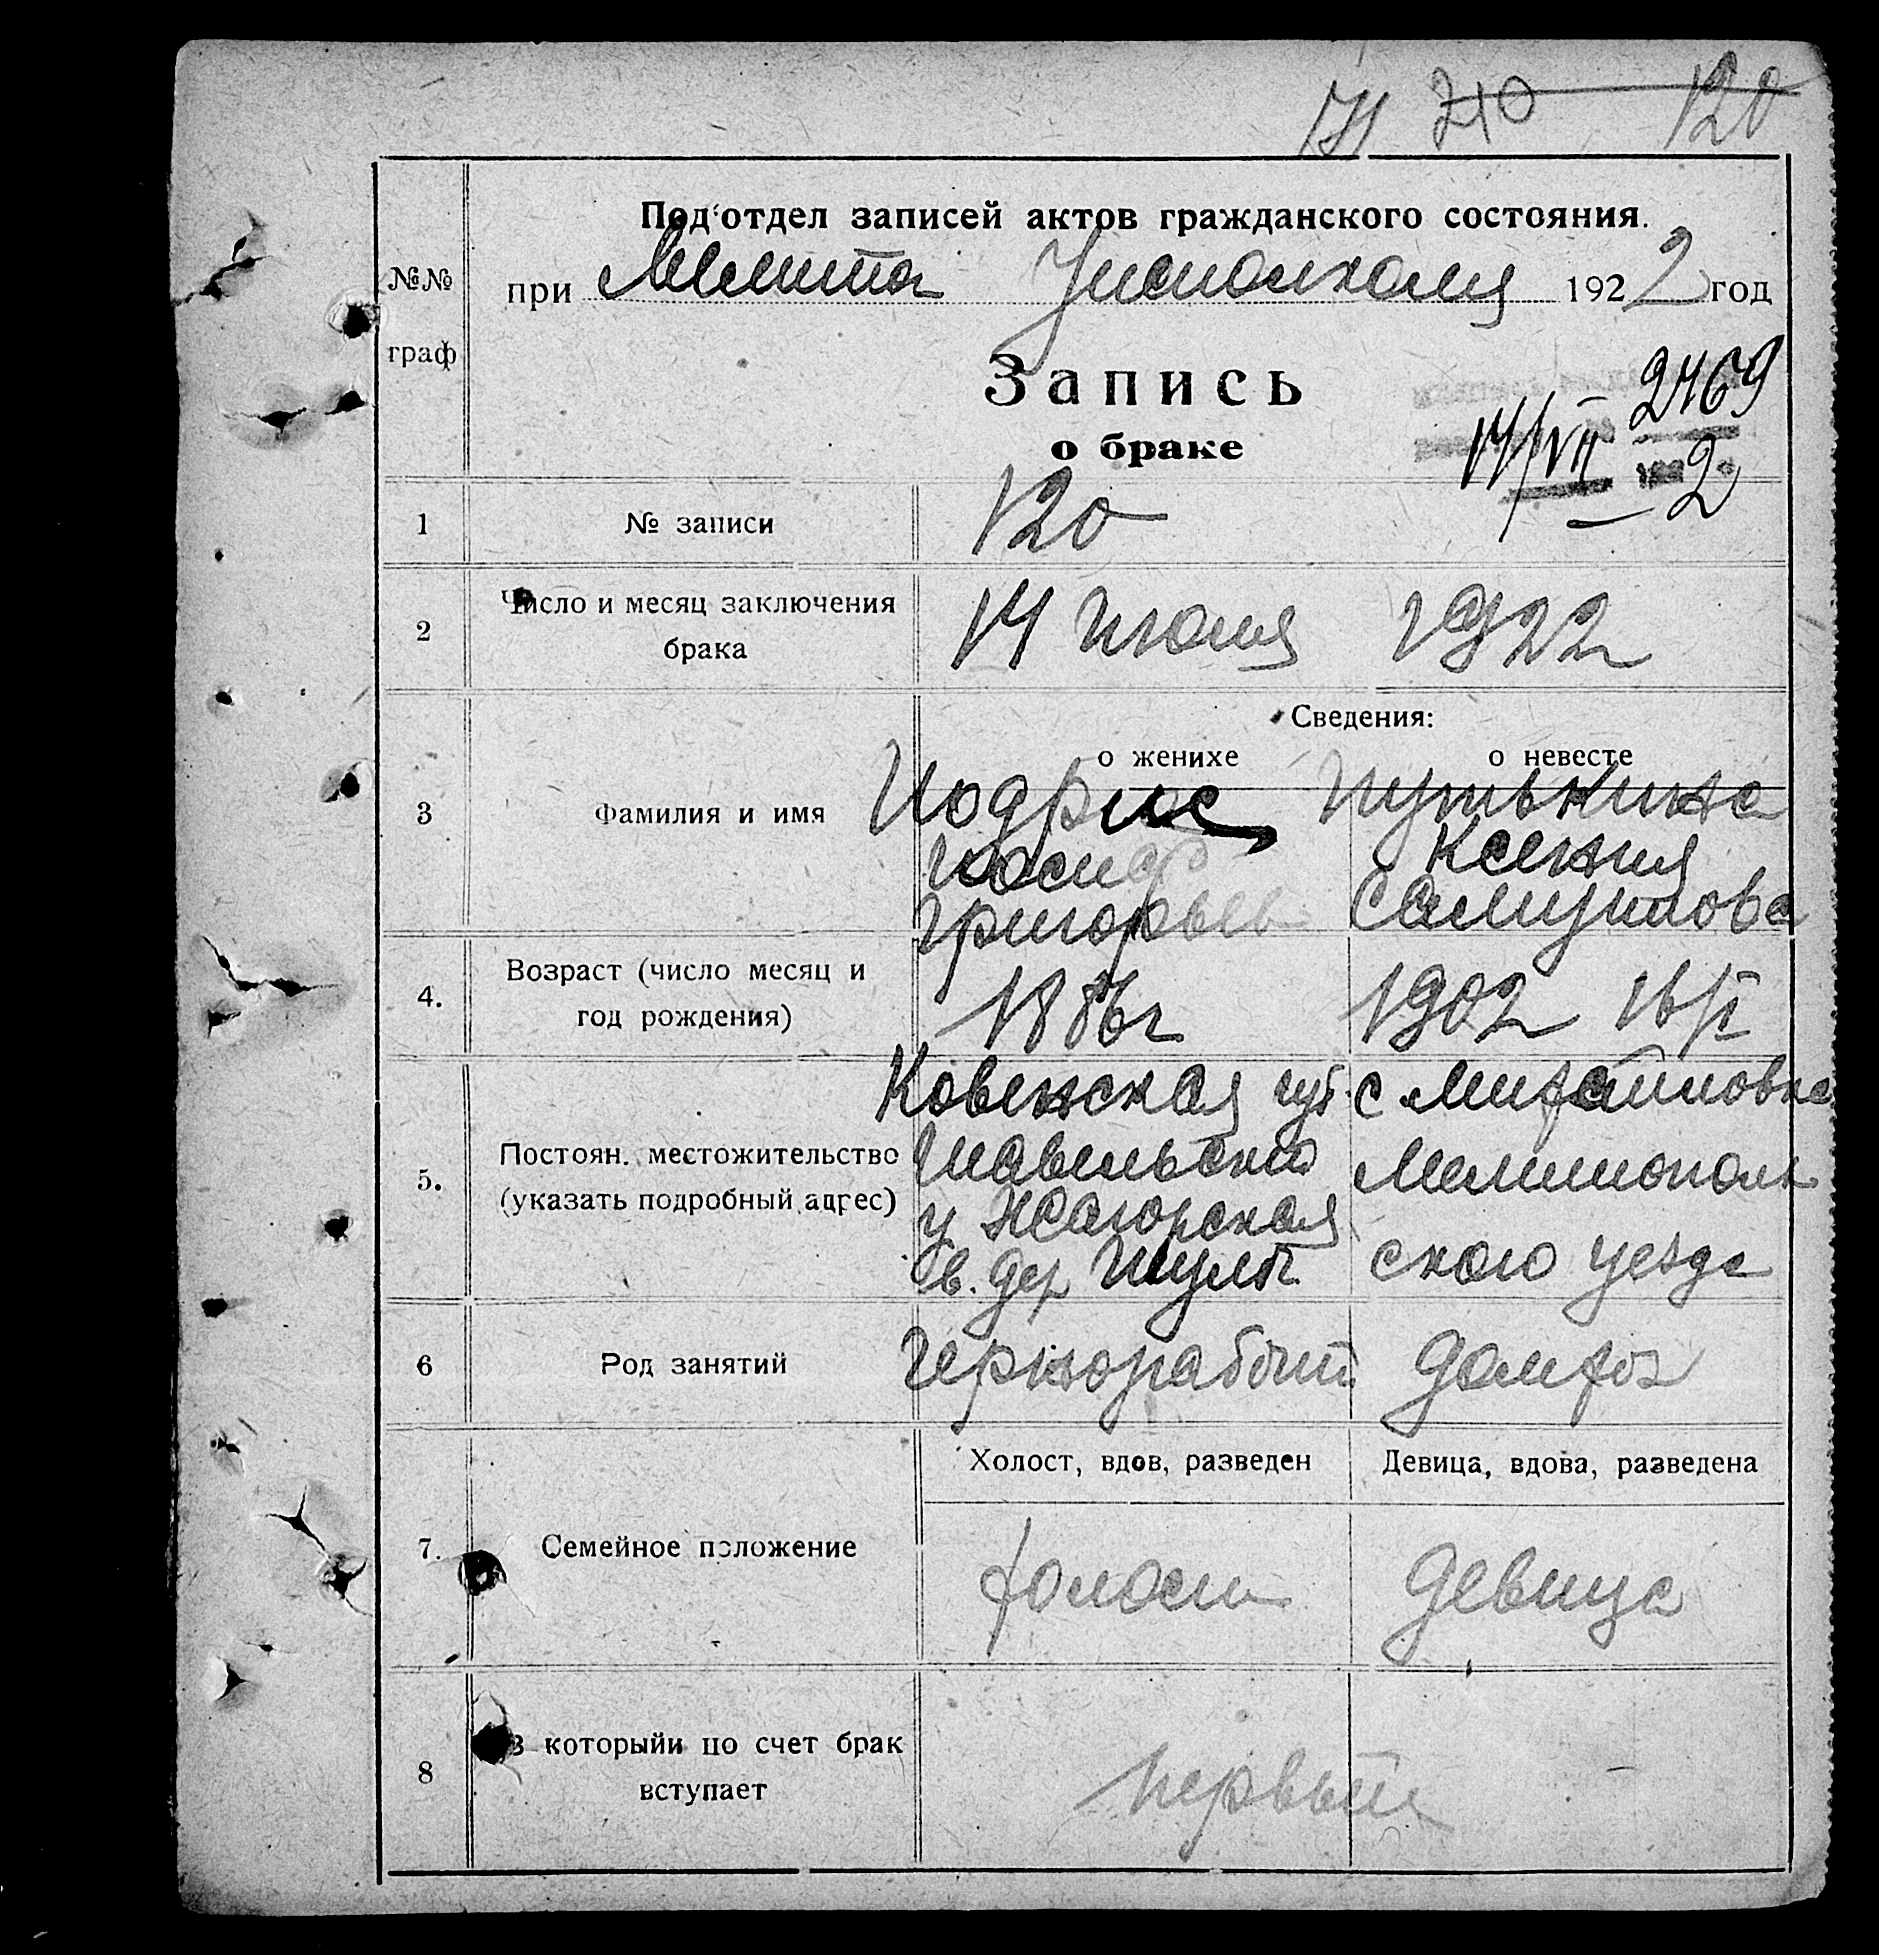 171 210 120
Подотдел записей актов гражданского состояния.
№№
при Мелита Уисполкома 1922 год
граф
Запись
2469
о браке
14/VII 2
1 № записи 120
2 Число и месяц заключения брака 14 июля 1922
Сведения:
о женихе о невесте
3 Фамилия и имя
Иодрис Путькина
Иосиф Ксения
Григорьев Самуилова
4. Возраст (число месяц и год рождения) 1886г 1902
5. Постоян. местожительство (указать подробный адрес)
Ковенская губ. с Михайловка
Шавельский Мелитополь
у Жагорская ского уезда
в. дер
6 Род занятий Чернорабочий домхоз
Холост, вдов, разведен Девица, вдова, разведена
7. Семейное положение холост девица
8 В которыйи по счет брак вступает первый